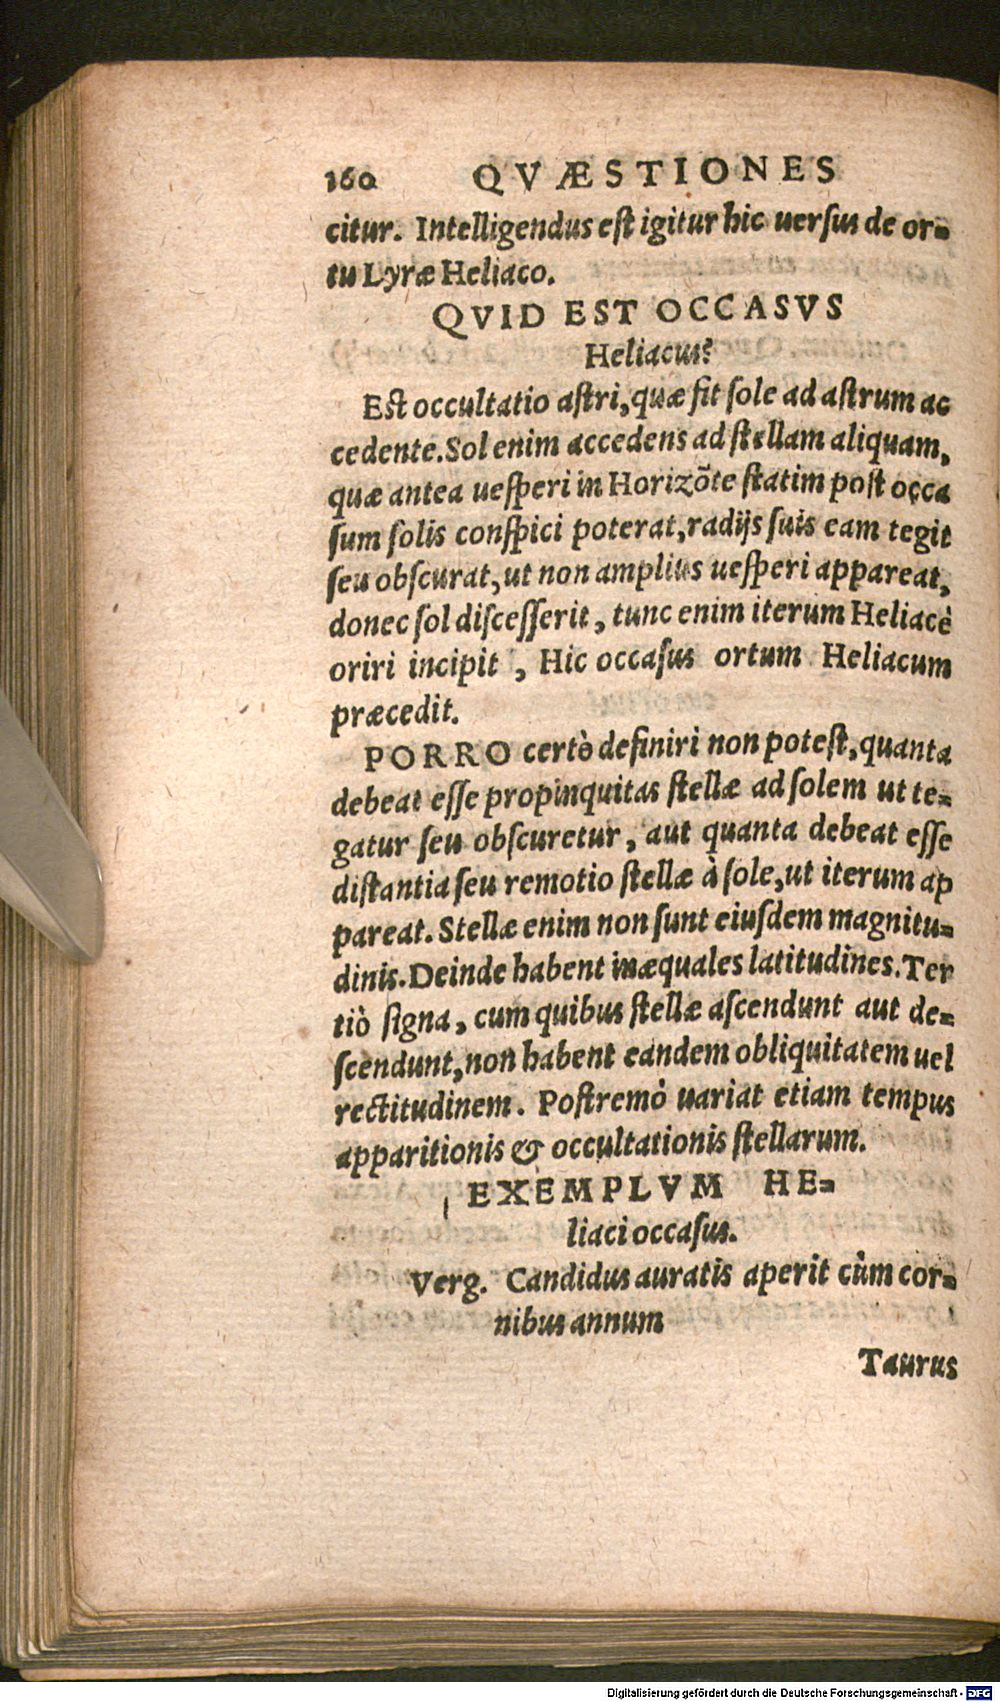 160 QVÆSTIONES
citur. Intelligendus est igitur hic uersus de or-
tu Lyræ Heliaco.
QVID EST OCCASVS
Heliacus?
Est occultatio astri, quæ fit sole ad astrum ac
cedente. Sol enim accedens ad stellam aliquam,
quæ antea uesperi in Horizõte statim post occa
sum solis conspici poterat, radijs suis eam tegit
seu obscurat, ut non amplius uesperi appareat,
donec sol discesserit, tunc enim iterum Heliacè
oriri incipit, Hic occasus ortum Heliacum
præcedit.
PORRO certò definiri non potest, quanta
debeat esse propinquitas stellæ ad solem ut te-
gatur seu obscuretur, aut quanta debeat esse
distantia seu remotio stellæ à sole, ut iterum ap
pareat. Stellæ enim non sunt eiusdem magnitu-
dinis. Deinde habent inæquales latitudines. Ter
tiò signa, cum quibus stellæ ascendunt aut de-
scendunt, non habent eandem obliquitatem uel
rectitudinem. Postremò uariat etiam tempus
apparitionis & occultationis stellarum.
EXEMPLVM HE-
liaci occasus.
Verg. Candidus auratis aperit cùm cor-
nibus annum
Taurus
Digitalisierung gefördert durch die Deutsche Forschungsgemeinschaft - DFG